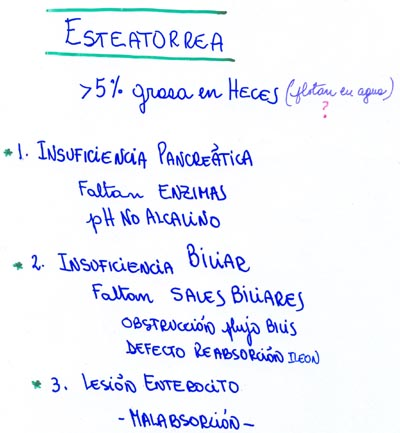 ESTEATORREA
>5% grasa en HECES (flotan en agua)
?
* 1. INSUFICIENCIA PANCREÁTICA
Faltan ENZIMAS
pH NO ALCALINO
* 2. INSUFICIENCIA BILIAR
Faltan SALES BILIARES
OBSTRUCCIÓN flujo BILIS
DEFECTO REABSORCIÓN ILEON
* 3. LESIÓN ENTEROCITO
- MALABSORCIÓN -